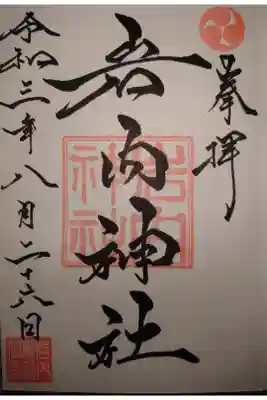 奉拝
岩内神社
令和三年八月二十六日
岩内神社